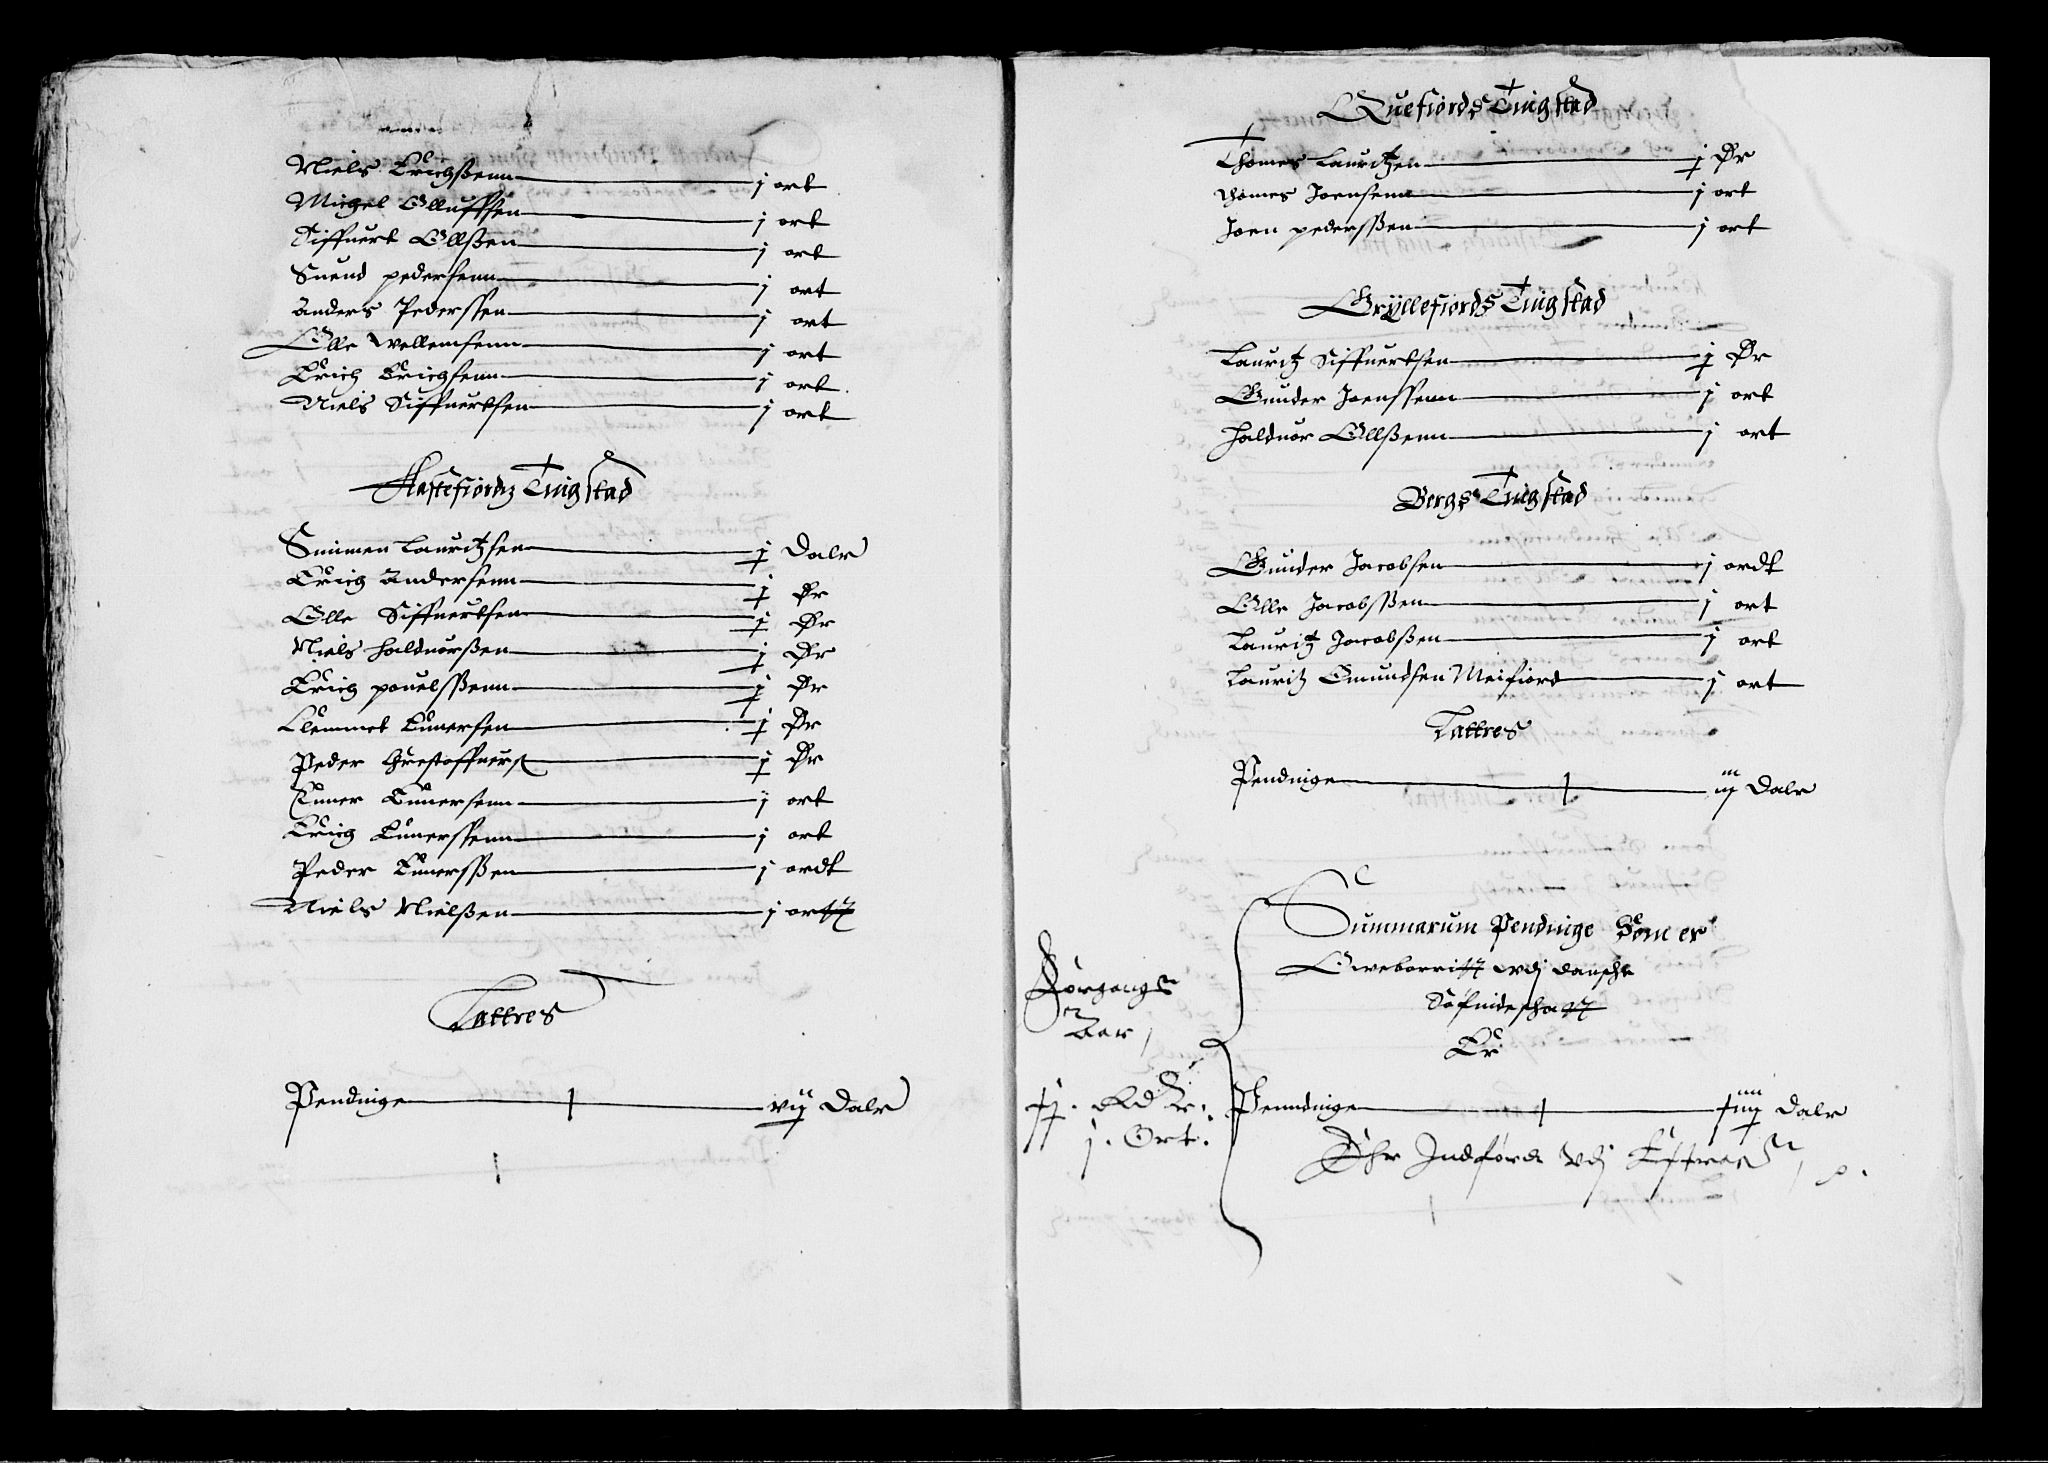 Niels Erichßenn j ort
Michel Olluffsen j ort
Siffuert Ollßen j ort
Suend pedersenn j ort
Anders Pederssen j ort
Olle Wellemsenn j ort
Erich Erichsenn j ort
Niels Siffuertsen j ort
Astefiordz Tingstad
Simmen Lauritzsen j Dalr
Erich Andersenn j ør
Olle Siffuertsen j ør
Niels Halduorßen j ør
Erich pouelsßenn j ør
Clemmet Einersen j ør
Peder Chrestoffuers j ør
Einer Einersenn j ort
Erich Einerssenn j ort
Peder Einersßen j ordt
Niels Nielßen j ortt
Lattres
Pendinge vij Dalr
Quefiords Tingstad
Thomes Lauritzen j ør
Thomes Joensenn j ort
Joen pedersßen j ort
Gryllefiords Tingstad
Lauritz Siffuertsen j ør
Gunder Joenssenn j ort
Halduor Ollßenn j ort
Bergs Tingstad
Gunder Jacobsen j ordt
Olle Jacobsßen j ort
Lauritz Jacobßen j ort
Lauritz Emundsen Meifiord j ort
Lattres
Pendinge iij Dalr
Summarum Pendinge Som er
Opeborritt vdj danske
Søfindeskatt
Er
Penndinge Dalr
Forgangen
Aar
j. Ort.
Ehr Indførdt Vdj